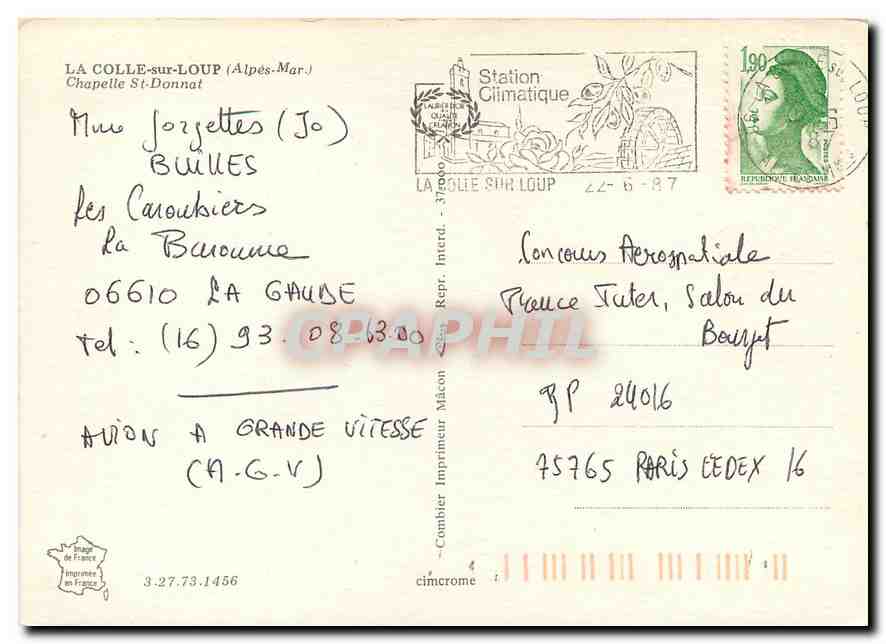 LA COLLE-sur-LOUP (Alpes-Mar.)
Chapelle St-Donnat
Mme Jorgettes (Jo)
BUILLES
Les Caroubiers
La Baronne
06610 LA GAUDE
Tel : (16) 93. 08-63.00
AVION A GRANDE VITESSE
(A-G-V)
Image
de France
Imprimée
en France
3.27.73.1456
Combier Imprimeur Mâcon Repr. Interd. - 37.000
cimcrome
Station
Climatique
LAURIER D'OR
QUALITE
CREATION
LA COLLE SUR LOUP 22-6-87
1,90
REPUBLIQUE FRANÇAISE
Concours Aerospatiale
France Inter, Salon du
Bourget
BP 24016
75765 PARIS CEDEX 16
CPAPHIL